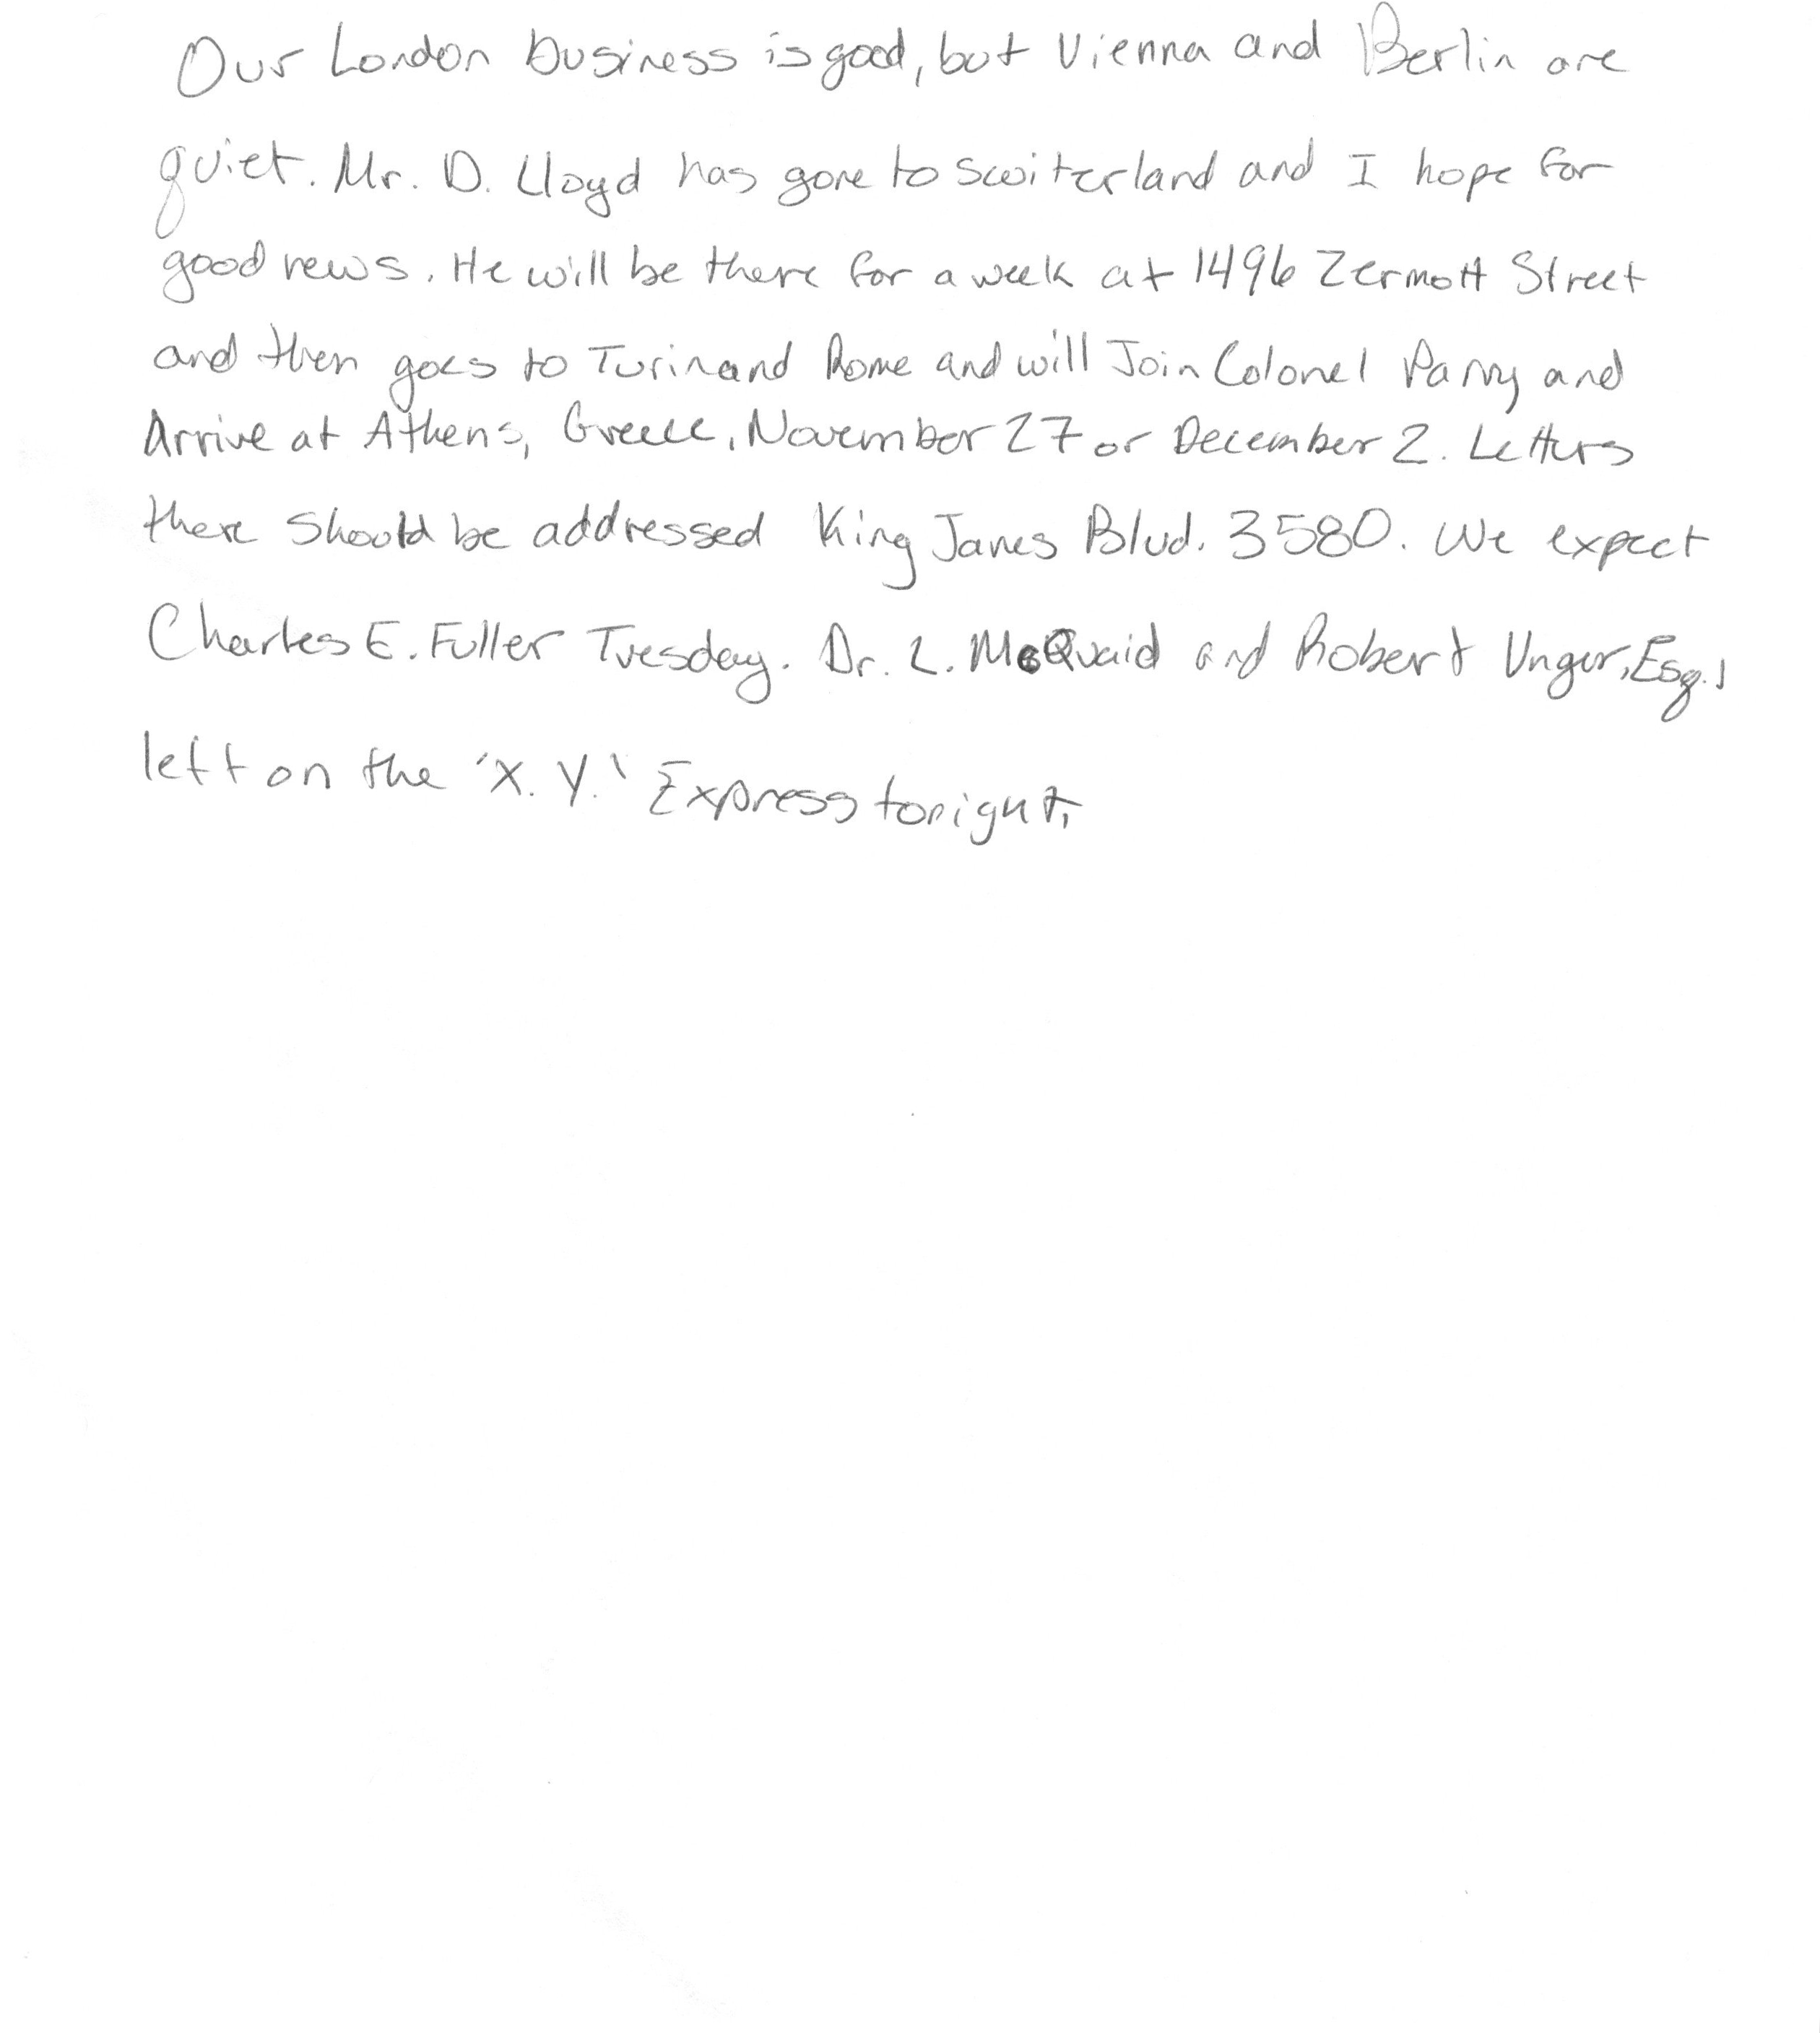 Our London business is good, but Vienna and Berlin are
quiet. Mr. D. Lloyd has gone to Switzerland and I hope for
good news. He will be there for a week at 1496 Zermott Street
and then goes to Turin and Rome and will Join Colonel Parry and
Arrive at Athens, Greece, November 27 or December 2. Letters
there Should be addressed King James Blvd. 3580. We expect
Charles E. Fuller Tuesday. Dr. L. McQuaid and Robert Unger, Esq.,
left on the 'X. Y.' Express tonight,